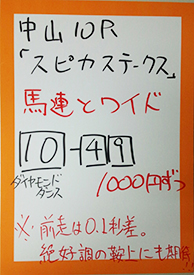 中山10R
「スピカステークス」
馬連とワイド
10-49
ダイヤモンド
ダンス
1000円ずつ
※前走は0.1秒差。
絶好調の鞍上にも期待